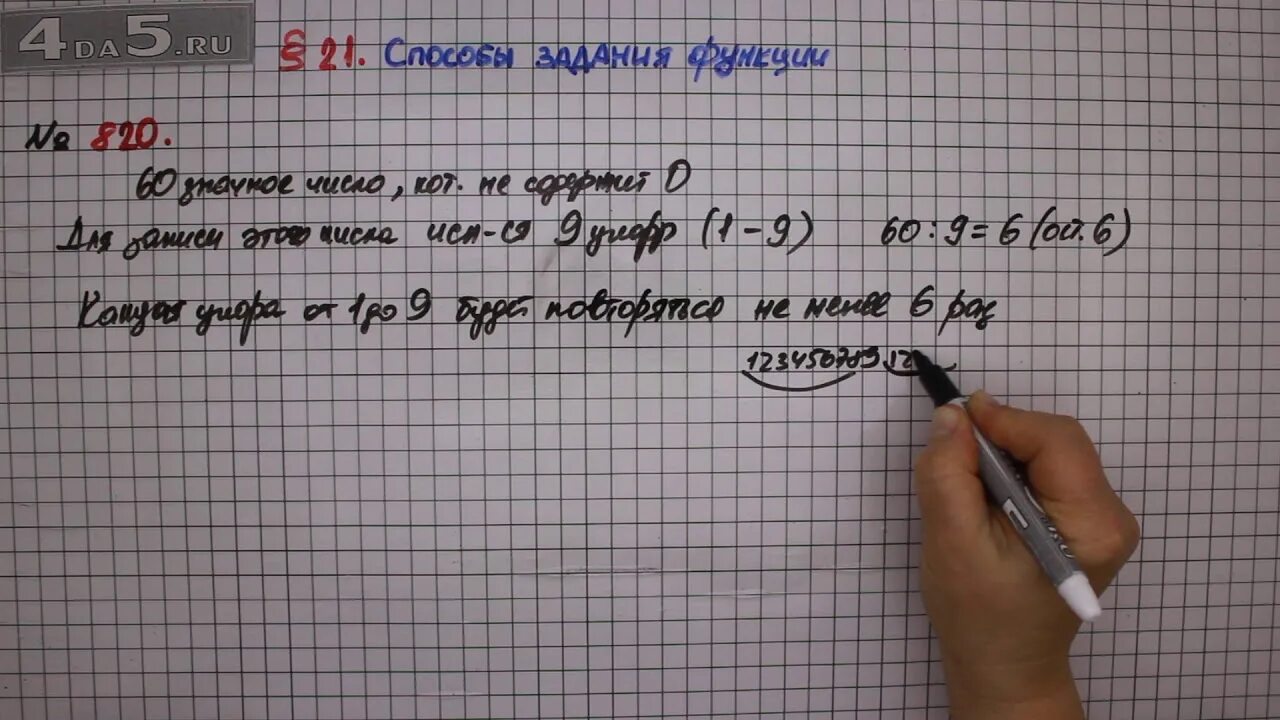 4DA5.RU
§ 21. Способы задания функции
№ 820.
60 значное число, кот. не содержит 0
Для записи этого числа исп-ся 9 цифр (1-9) 60:9=6 (ост. 6)
Каждая цифра от 1 до 9 будет повторяться не менее 6 раз
123456789 12